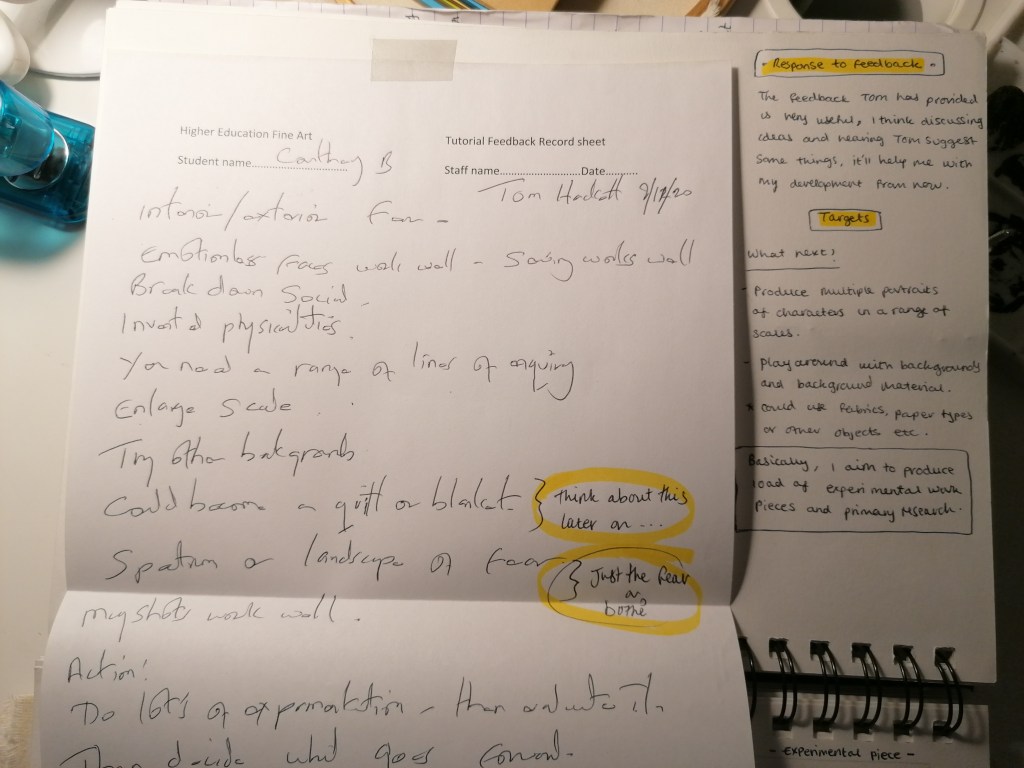 Higher Education Fine Art
Tutorial Feedback Record sheet
Student name.............................. B
Staff name.........................Date..........
Tom Hackett 9/12/20
Interior/exterior Fear -
Emotionless faces work well - Sewing works well
Break down Social.
Inverted physicalities.
You need a range of lines of enquiry
Enlarge Scale
Try other backgrounds
Could become a quilt or blanket
Spectrum or landscape of fear
mugshots work well.
Action!
Do lots of experimentation - then evaluate it.
Then decide what goes forward.
think about this
later on ...
Just the fear
or
both?
- Response to feedback -
The feedback Tom has provided
is very useful, I think discussing
ideas and hearing Tom suggest
some things, it'll help me with
my development from now.
Targets
What next?
- Produce multiple portraits
of characters in a range of
scales.
- Play around with backgrounds
and background material.
* could use fabrics, paper types
or other objects etc.
Basically, I aim to produce
load of experimental work
pieces and primary research.
- Experimental piece -